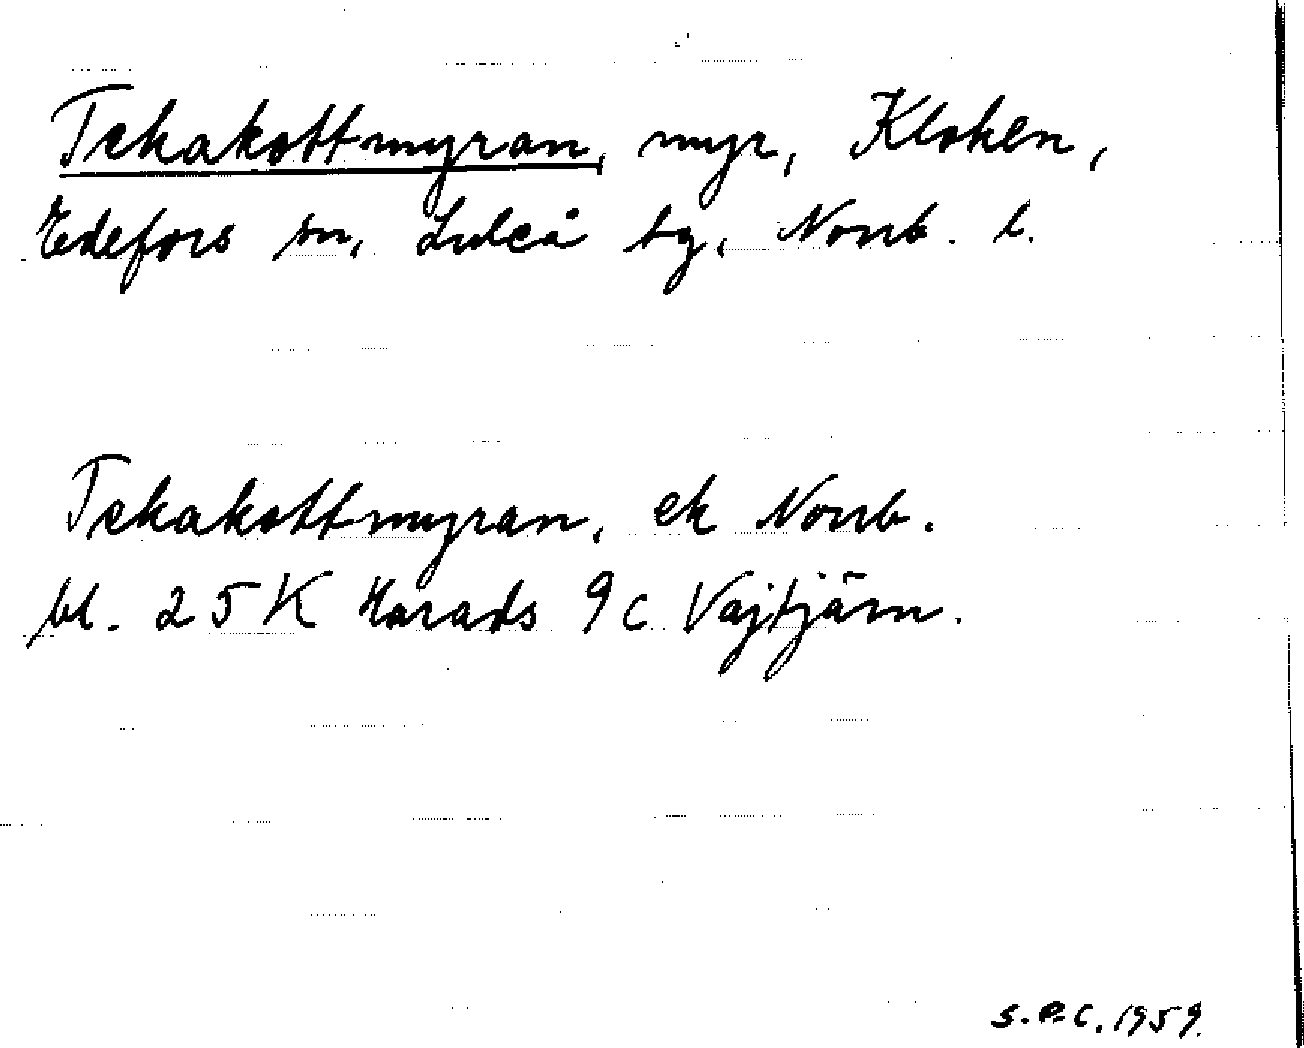 Tekakottmyran, myr, Kloken,
Edefors sn, Luleå tg, Norrb. l.
Tekakottmyran, ek Norrb.
bl. 25K Harads 9c Vajtjärn.
s.e.c. 1959